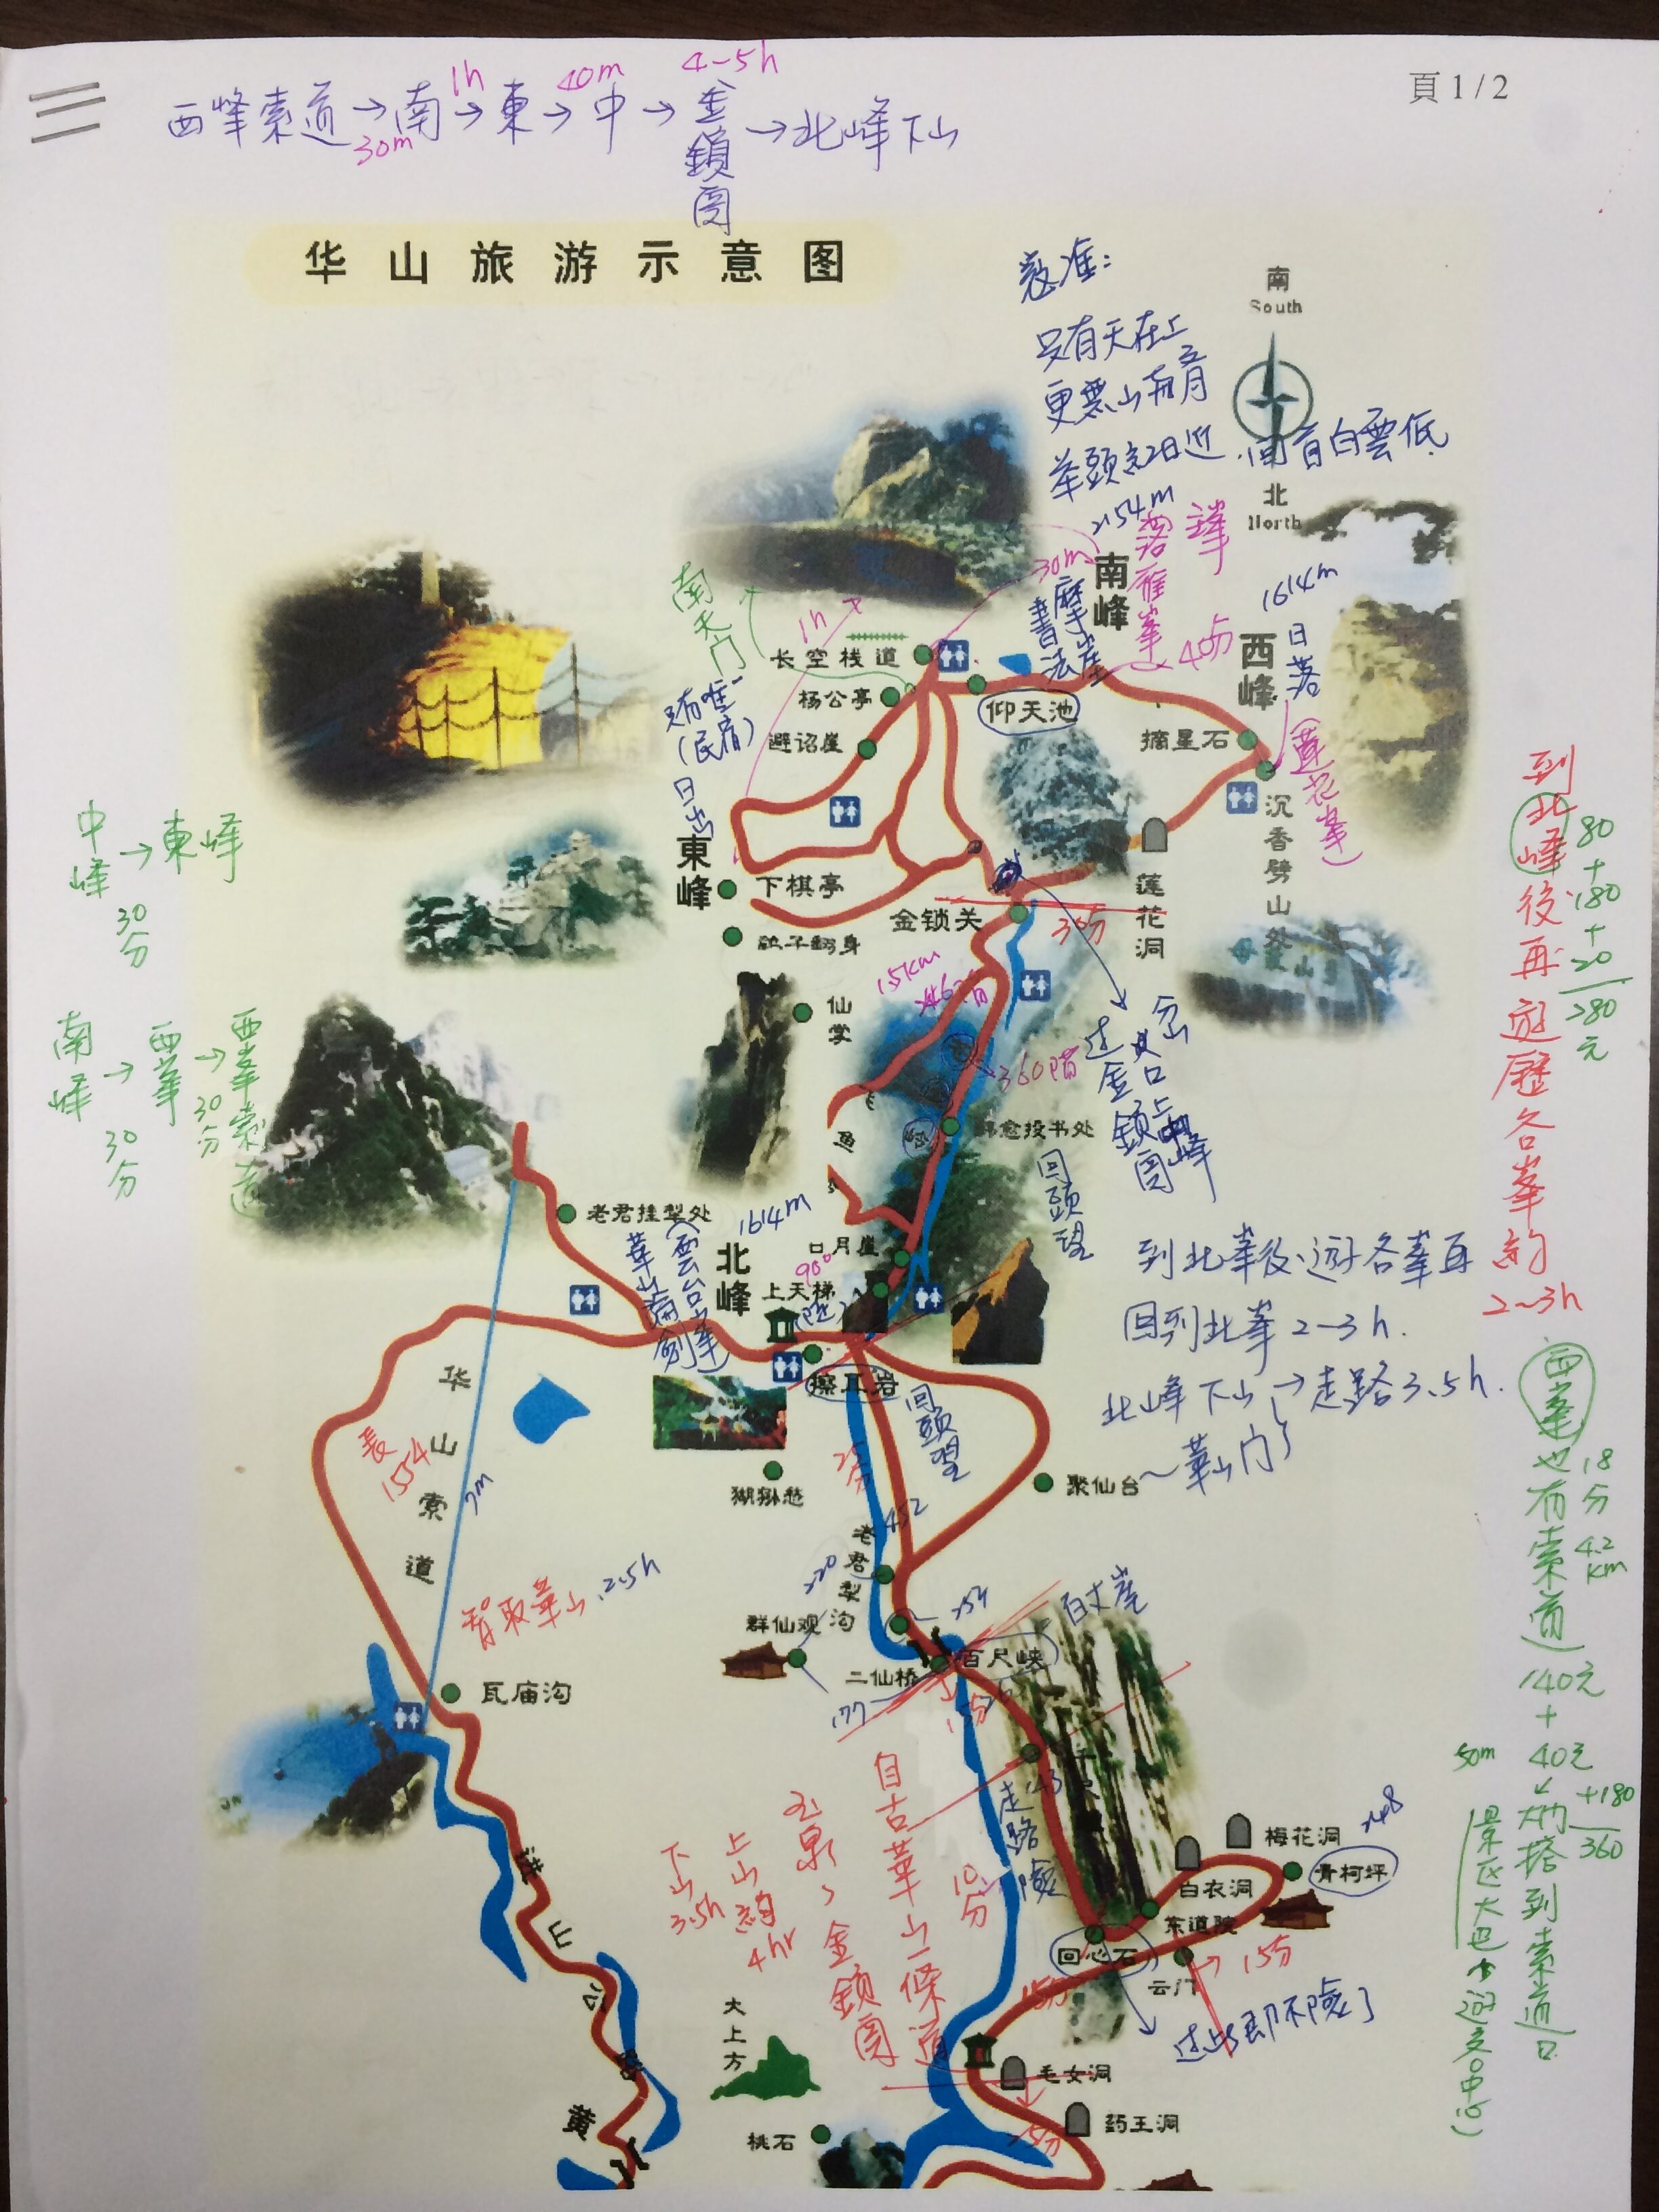 頁 1 / 2
西峰索道→南→東→中→金鎖関→北峰下山
30m
1h
40m
4-5h
华山旅游示意图
寇准:
只有天在上
更無山与齊
举頭紅日近
回首白雲低
南
South
北
North
2154m
南峰
落雁峯
30m
摩崖書法
40分
1614m
西峰
日落
(蓮花峯)
南天门
1h
长空栈道
杨公亭
仰天池
避诏崖
摘星石
只有唯一
(民宿)
日出
東峰
下棋亭
鹞子翻身
金锁关
莲花洞
沉香劈山处
中峰→東峰
30分
南峰→西峯→西峯索道
30分
30分
仙掌
1.5km
30分
360階
过金鎖関
岔口
上中峰
韩愈投书处
回頭望
老君挂犁处
1614m
北峰
(雲台峯)
華山論劍
日月崖
90°
上天梯
(陡)
擦耳岩
回頭望
到北峯後遊各峯再
回到北峯 2-3h.
北峰下山→走路3.5h.
~華山门
华山索道
長1554m
猢狲愁
聚仙台
452
老君犁沟
220
254
群仙观
二仙桥
177
百尺峡
百丈崖
15分
智取華山 2.5h
瓦庙沟
143
走路險
自古華山一條道
玉泉~金鎖関
上山約4hr
下山3.5h
10分
梅花洞
白衣洞
青柯坪
东道院
回心石
云门
15分
15分
过此即不險了
大上方
毛女洞
药王洞
桃石
进山公路
黄
到北峰後再遊歷各峯約2~3h
80
+
180
+
20
280元
西峯也有索道
18分
4.2km
140元
+
40元
+180
360
大門搭到索道口
50m